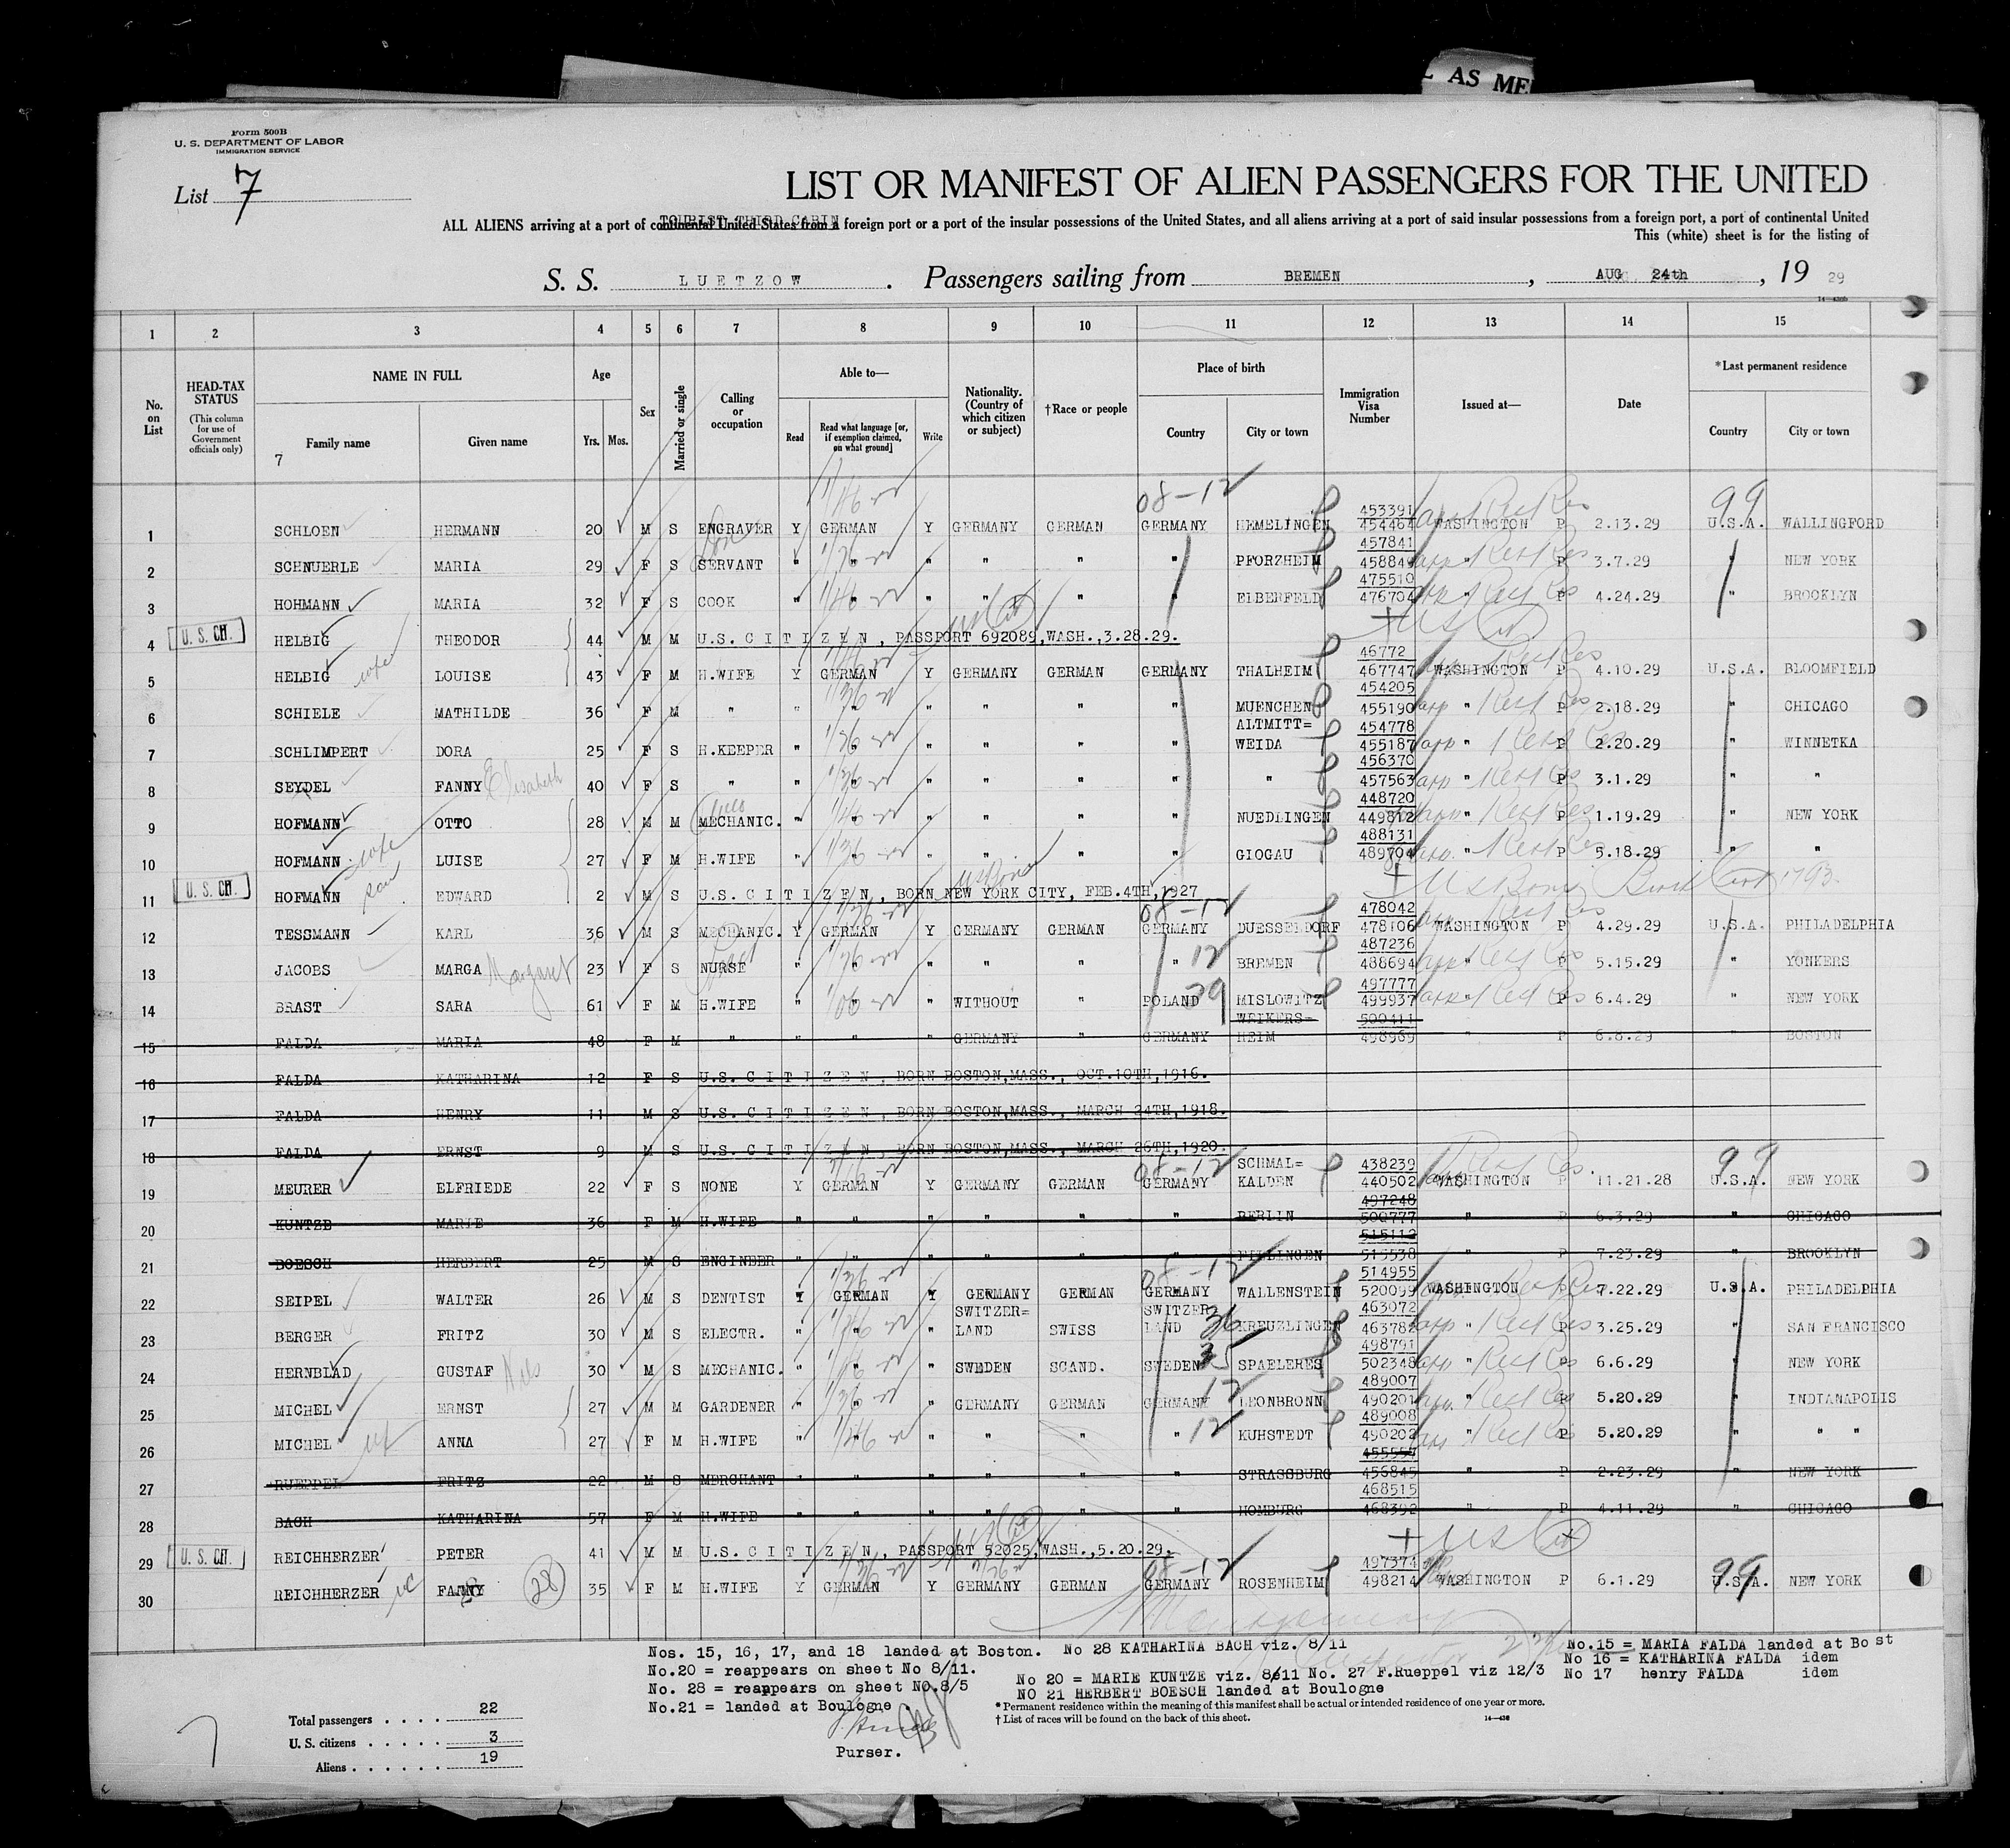 L AS ME
Form 500B
U. S. DEPARTMENT OF LABOR
IMMIGRATION SERVICE
List 7
LIST OR MANIFEST OF ALIEN PASSENGERS FOR THE UNITED
TOURIST THIRD CABIN
ALL ALIENS arriving at a port of continental United States from a foreign port or a port of the insular possessions of the United States, and all aliens arriving at a port of said insular possessions from a foreign port, a port of continental United
This (white) sheet is for the listing of
S. S. LUETZOW. Passengers sailing from BREMEN, AUG. 24th, 19 29
14—430b
1 2 3 4 5 6 7 8 9 10 11 12 13 14 15
No. on List
HEAD-TAX STATUS
(This column for use of Government officials only)
NAME IN FULL
Family name
Given name
7
Age
Yrs. Mos.
Sex
Married or single
Calling or occupation
Able to—
Read
Read what language [or, if exemption claimed, on what ground]
Write
Nationality. (Country of which citizen or subject)
†Race or people
Place of birth
Country
City or town
Immigration Visa Number
Issued at—
Date
*Last permanent residence
Country
City or town
08-12 453391 99
1 SCHLOEN HERMANN 20 M S ENGRAVER Y GERMAN Y GERMANY GERMAN GERMANY HEMELINGEN 454464 WASHINGTON P 2.13.29 U.S.A. WALLINGFORD
457841
2 SCHNUERLE MARIA 29 F S SERVANT " " " " " " PFORZHEIM 458849 " P 3.7.29 " NEW YORK
475510
3 HOHMANN MARIA 32 F S COOK " " " " " " ELBERFELD 476704 " P 4.24.29 " BROOKLYN
U. S. CIT.
4 HELBIG THEODOR 44 M M U.S. C I T I Z E N , PASSPORT 692089,WASH.,3.28.29. US Cit
46772
5 HELBIG wife LOUISE 43 F M H.WIFE Y GERMAN Y GERMANY GERMAN GERMANY THALHEIM 467747 WASHINGTON P 4.10.29 U.S.A. BLOOMFIELD
454205
6 SCHIELE MATHILDE 36 F M " " " " " " " MUENCHEN 455190 " P 2.18.29 " CHICAGO
ALTMITT= 454778
7 SCHLIMPERT DORA 25 F S H.KEEPER " " " " " " WEIDA 455187 " P 2.20.29 " WINNETKA
456370
8 SEYDEL FANNY Elisabeth 40 F S " " " " " " " " 457563 " P 3.1.29 " "
448720
9 HOFMANN OTTO 28 M M MECHANIC. " " " " " " NUEDLINGEN 449812 " P 1.19.29 " NEW YORK
488131
10 HOFMANN wife LUISE 27 F M H.WIFE " " " " " " GIOGAU 489704 " P 5.18.29 " "
U. S. CIT.
11 HOFMANN son EDWARD 2 M S U.S. C I T I Z E N , BORN NEW YORK CITY, FEB.4TH,1927 US Born
08-12 478042
12 TESSMANN KARL 36 M S MECHANIC. Y GERMAN Y GERMANY GERMAN GERMANY DUESSELDORF 478106 WASHINGTON P 4.29.29 U.S.A. PHILADELPHIA
487236
13 JACOBS MARGA Margaret 23 F S NURSE " " " " " " 12 BREMEN 488694 " P 5.15.29 " YONKERS
497777
14 BRAST SARA 61 F M H.WIFE " " " WITHOUT " POLAND MISLOWITZ 499937 " P 6.4.29 " NEW YORK
WEIKERS= 500411
15 FALDA MARIA 48 F M " " " GERMANY " GERMANY HEIM 498969 " P 6.8.29 BOSTON
16 FALDA KATHARINA 12 F S U.S. C I T I Z E N , BORN BOSTON,MASS., OCT.10TH,1916.
17 FALDA HENRY 11 M S U.S. C I T I Z E N , BORN BOSTON,MASS., MARCH 24TH,1918.
18 FALDA ERNST 9 M S U.S. C I T I Z E N , BORN BOSTON,MASS., MARCH 26TH,1920.
08-12 SCHMAL= 438239 99
19 MEURER ELFRIEDE 22 F S NONE Y GERMAN Y GERMANY GERMAN GERMANY KALDEN 440502 WASHINGTON P 11.21.28 U.S.A. NEW YORK
497248
20 KUNTZE MARIE 36 F M H.WIFE " " " " " " BERLIN 500777 " P 6.3.29 " CHICAGO
515112
21 BOESCH HERBERT 25 M S ENGINEER " " " " " " FILLINGEN 515538 P 7.23.29 " BROOKLYN
08-12 514955
22 SEIPEL WALTER 26 M S DENTIST Y GERMAN Y GERMANY GERMAN GERMANY WALLENSTEIN 520099 WASHINGTON P 7.22.29 U.S.A. PHILADELPHIA
SWITZER= SWITZER 463072
23 BERGER FRITZ 30 M S ELECTR. " " " LAND SWISS LAND 36 KREUZLINGEN 463782 " P 3.25.29 " SAN FRANCISCO
498791
24 HERNBLAD GUSTAF Nils 30 M S MECHANIC. " " " SWEDEN SCAND. SWEDEN 35 SPAELERES 502348 " P 6.6.29 " NEW YORK
489007
25 MICHEL ERNST 27 M M GARDENER " " " GERMANY GERMAN GERMANY 12 LEONBRONN 490201 " P 5.20.29 " INDIANAPOLIS
489008
26 MICHEL ANNA 27 F M H.WIFE " " " " " " 12 KUHSTEDT 490202 " P 5.20.29 " " "
455554
27 RUEPPEL FRITZ 22 M S MERCHANT " " " " " " STRASSBURG 456845 " P 2.23.29 " NEW YORK
468515
28 BACH KATHARINA 57 F M H.WIFE " " " " " " HOMBURG 468392 " P 4.11.29 " CHICAGO
U. S. CIT.
29 REICHHERZER PETER 41 M M U.S. C I T I Z E N , PASSPORT 52025,WASH.,5.20.29. US Cit
08-12 497374
30 REICHHERZER FANNY 28 35 F M H.WIFE Y GERMAN Y GERMANY GERMAN GERMANY ROSENHEIM 498214 WASHINGTON P 6.1.29 U.S.A. 99 NEW YORK
Nos. 15, 16, 17, and 18 landed at Boston. No 28 KATHARINA BACH viz. 8/11
No.20 = reappears on sheet No 8/11.
No. 28 = reappears on sheet No.8/5
No.21 = landed at Boulogne
No 20 = MARIE KUNTZE viz. 8/11 No. 27 F.Rueppel viz 12/3
NO 21 HERBERT BOESCH landed at Boulogne
No.15 = MARIA FALDA landed at Bo st
No 16 = KATHARINA FALDA idem
No 17 henry FALDA idem
* Permanent residence within the meaning of this manifest shall be actual or intended residence of one year or more.
† List of races will be found on the back of this sheet.
14—430
Total passengers . . . . 22
U. S. citizens . . . . . 3
Aliens . . . . . . 19
Purser.
7